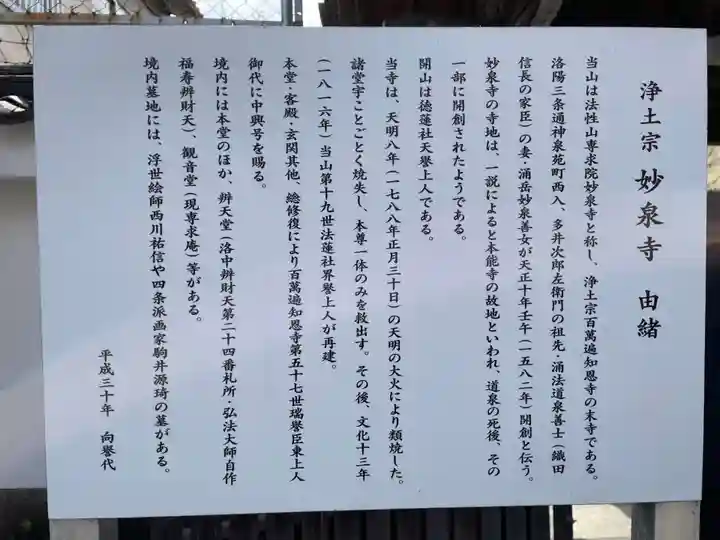 浄土宗 妙泉寺 由緒
当山は法性山専求院妙泉寺と称し、浄土宗百萬遍知恩寺の末寺である。
洛陽三条通神泉苑町西入、多井次郎左衛門の祖先・涌法道泉善士（織田
信長の家臣）の妻・涌岳妙泉善女が天正十年壬午（一五八二年）開創と伝う。
妙泉寺の寺地は、一説によると本能寺の故地といわれ、道泉の死後、その
一部に開創されたようである。
開山は徳蓮社天誉上人である。
当寺は、天明八年（一七八八年正月三十日）の天明の大火により類焼した。
諸堂宇ことごとく焼失し、本尊一体のみを救出す。その後、文化十三年
（一八一六年）当山第十九世法蓮社界誉上人が再建。
本堂・客殿・玄関其他、総修復により百萬遍知恩寺第五十七世瑞誉臣東上人
御代に中興号を賜る。
境内には本堂のほか、辨天堂（洛中辨財天第二十四番札所・弘法大師自作
福寿辨財天）、観音堂（現専求庵）等がある。
境内墓地には、浮世絵師西川祐信や四条派画家駒井源琦の墓がある。
平成三十年 向誉代